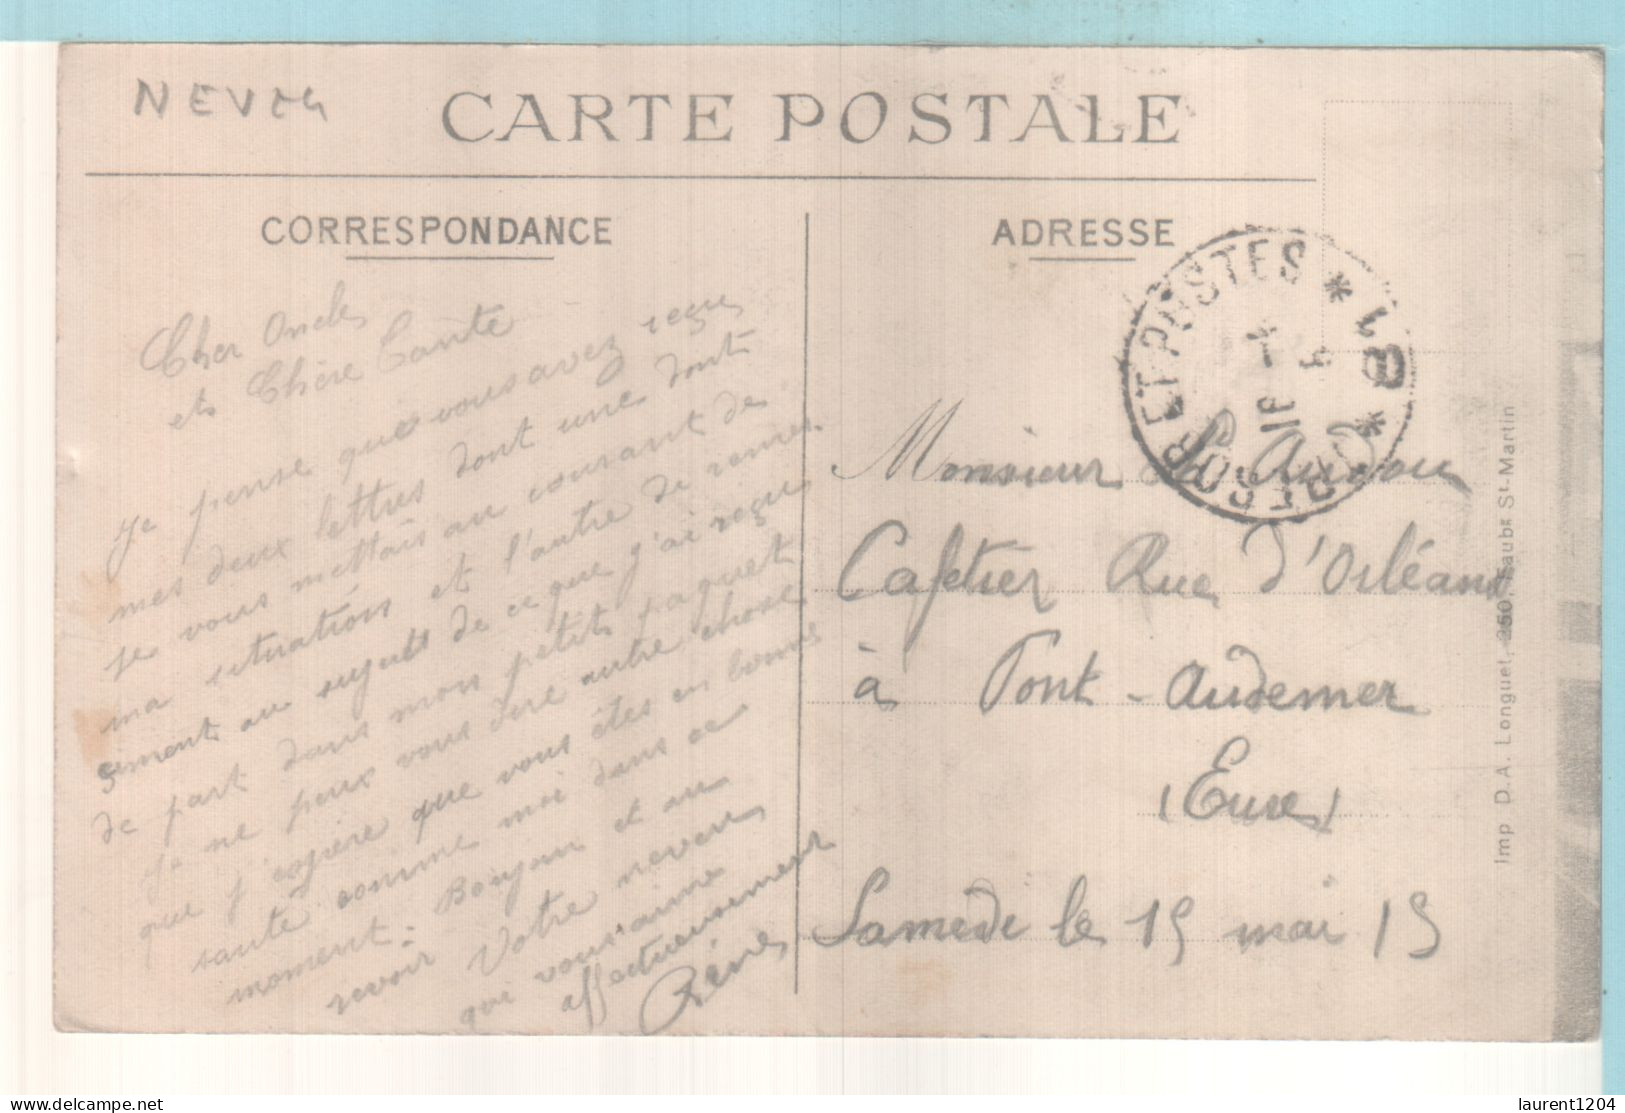 NEVERS
CARTE POSTALE
CORRESPONDANCE
Cher Oncle
et Chère Tante
je pense que vous avez reçu
mes deux lettres dont une dont
je vous mettais au courant de
ma situation et l'autre de remer
ciment au sujet de ce que j'ai reçu
de part dans mon petit paquet
je ne peux vous dire autre chose
que j'espère que vous êtes en bonne
santé comme moi dans ce
moment. Bonjour et au
revoir Votre neveu
qui vous aime
affectueusement
Rénes
ADRESSE
TRESOR ET POSTES * 18 *
16 5
Monsieur
Cafetier Rue d'Orléans
à Pont-Audemer
(Eure)
Samedi le 15 mai 15
Imp D.A. Longuet, 250, Faubg St-Martin
laurent1204